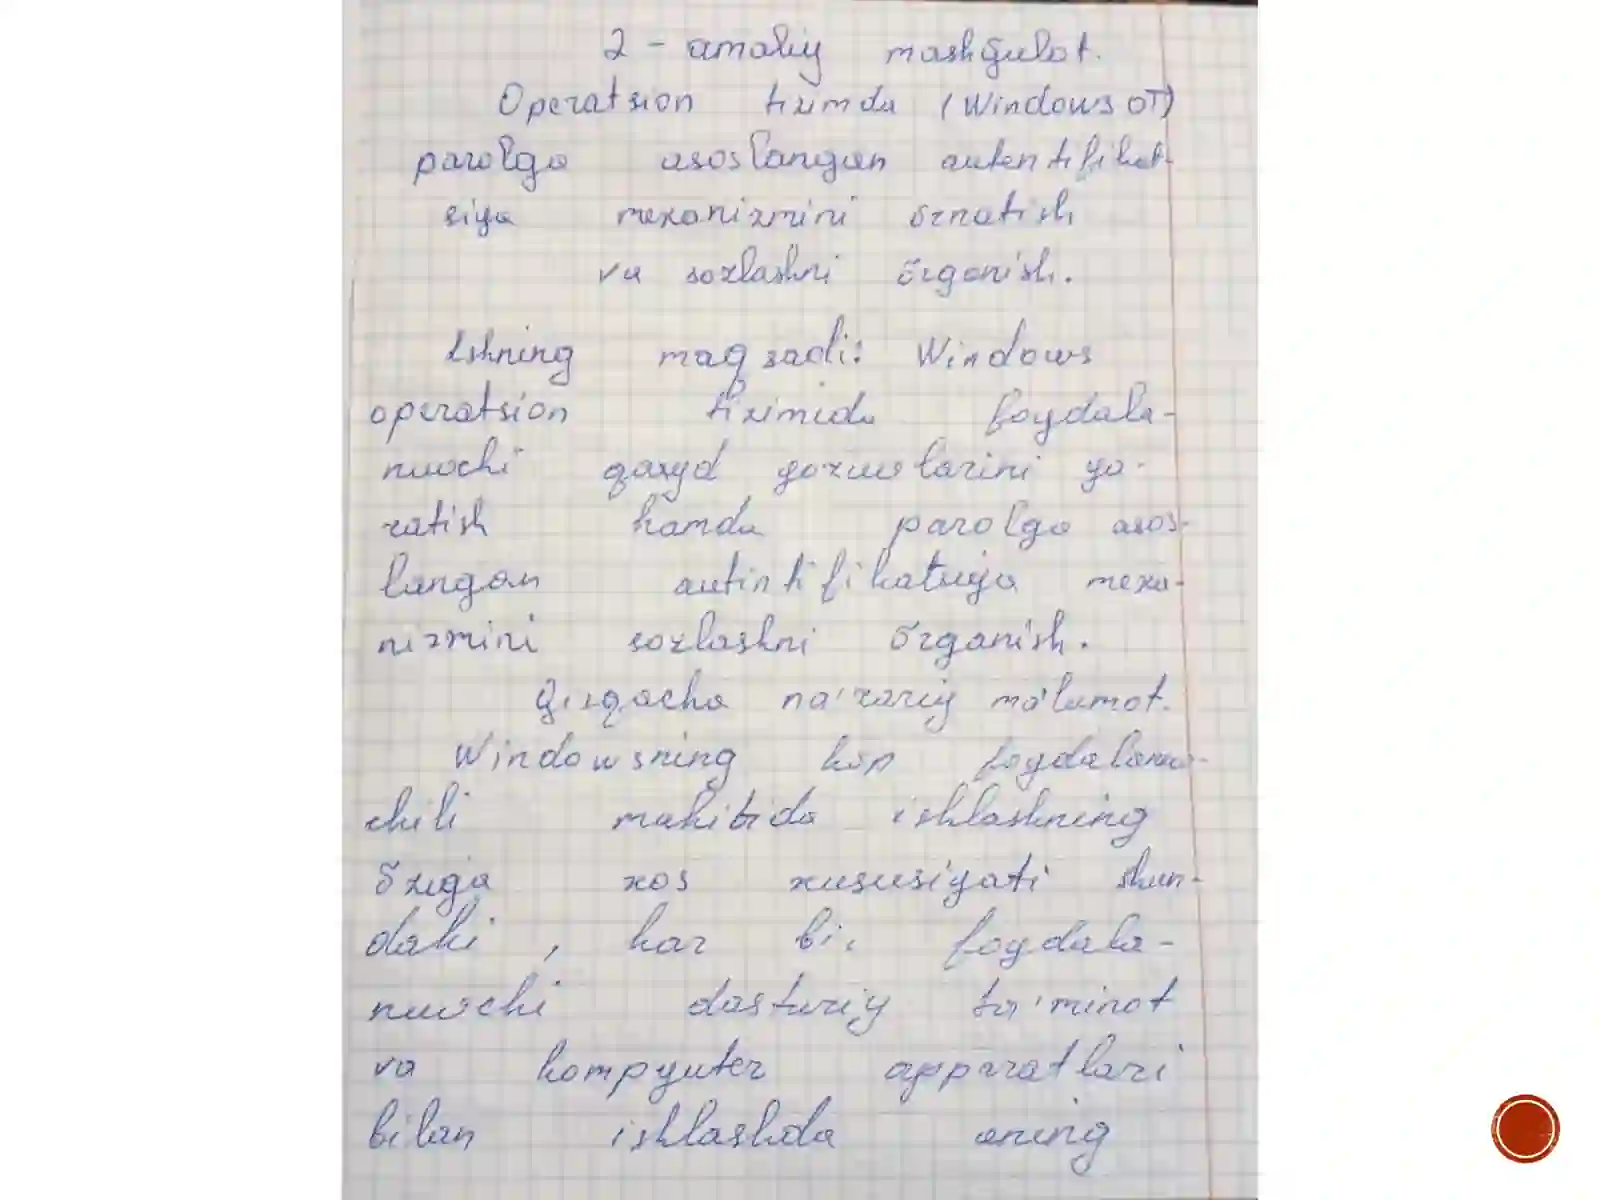 2 - amaliy mashğulot.
Operatsion tizimda (Windows OT)
parolga asoslangan autentifikat-
siya mexanizmini õrnatish
va sozlashni õrganish.
Ishning maqsadi: Windows
operatsion tizimida foydala-
nuvchi qayd yozuvlarini ya-
ratish hamda parolga asos-
langan autintifikatsiya mexa-
nizmini sozlashni õrganish.
Qisqacha na'zariy ma'lumot.
Windowsning kõp foydalanuv-
chili muhitida ishlashning
õziga xos xususiyati shun-
daki, har bir foydala-
nuvchi dasturiy ta'minot
va kompyuter apparatlari
bilan ishlashda uning